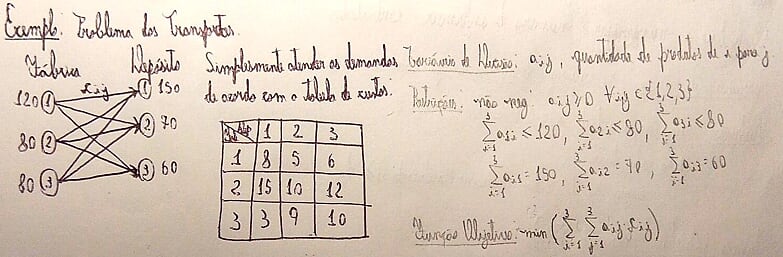 Exemplo: Problema dos Transportes.
Fábrica Depósito
x_ij
120 1 1 150
80 2 2 70
80 3 3 60
Simplesmente atender as demandas
de acordo com a tabela de custos:
Fáb\Dep 1 2 3
1 8 5 6
2 15 10 12
3 3 9 10
Variáveis de Decisão: a_ij, quantidade de produtos de i para j.
Restrições: não neg: a_ij ≥ 0 ∀i,j ∈ {1,2,3}
∑_{i=1}^{3} a_{1i} ≤ 120, ∑_{i=1}^{3} a_{2i} ≤ 80, ∑_{i=1}^{3} a_{3i} ≤ 80
∑_{i=1}^{3} a_{i1} = 150, ∑_{i=1}^{3} a_{i2} = 70, ∑_{i=1}^{3} a_{i3} = 60
Função Objetivo: min (∑_{i=1}^{3} ∑_{j=1}^{3} a_ij · x_ij)